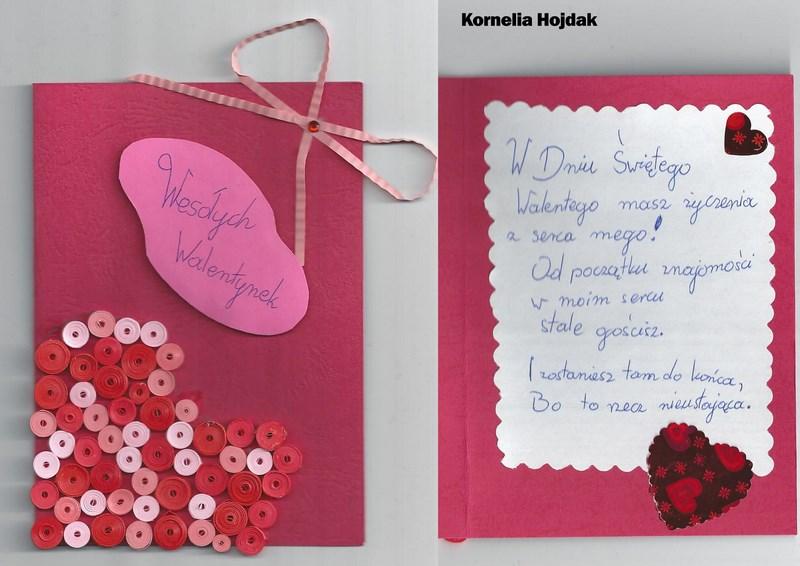 Kornelia Hojdak
Wesołych
Walentynek
W Dniu Świętego
Walentego masz życzenia
z serca mego!
Od początku znajomości
w moim sercu
stale gościsz.
I zostaniesz tam do końca,
Bo to rzecz nieustająca.